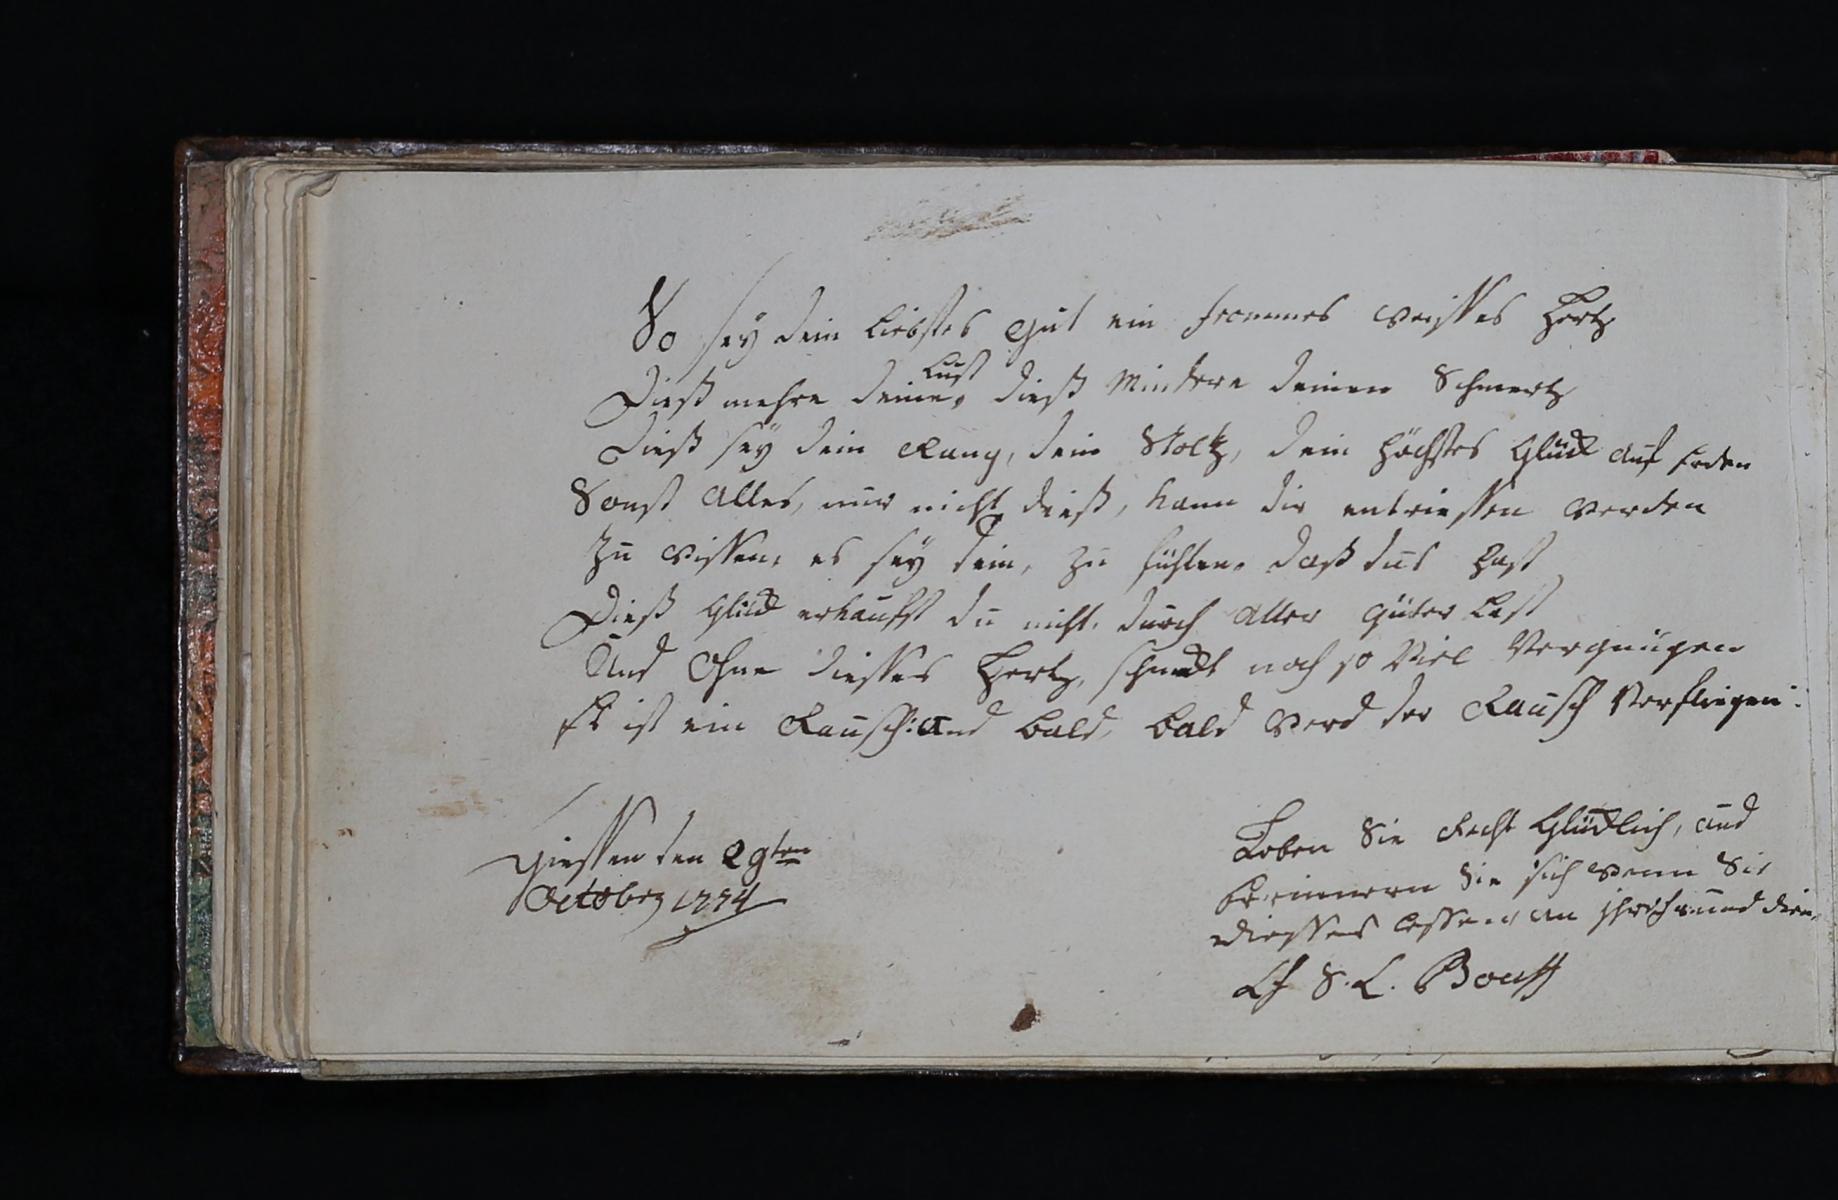 So sey dein liebstes Gut ein frommes weisses Hertz
Lust
Dieß mehre deine, dieß Mindere deinen Schmertz
Dieß sey dein Rang, dein Stoltz, dein höchstes Glück auf Erden
Sonst Alles, nur nicht dieß, kann dir entriessen werden
Zu wissen, es sey dein, zu fühlen, daß dus hast
Dieß Glück erkaufst du nicht, durch aller Güter Last
Und Ohne diesses Hertz, schmeckt noch so Viel Vergnügen
Es ist ein Rausch: und bald, bald werd der Rausch Verfliegen:
Giessen den 29ten
October 1774
Leben Sie Recht Glücklich, und
Erinnern Sie sich wenn Sie
diesses lessen an
S. L. Bouff